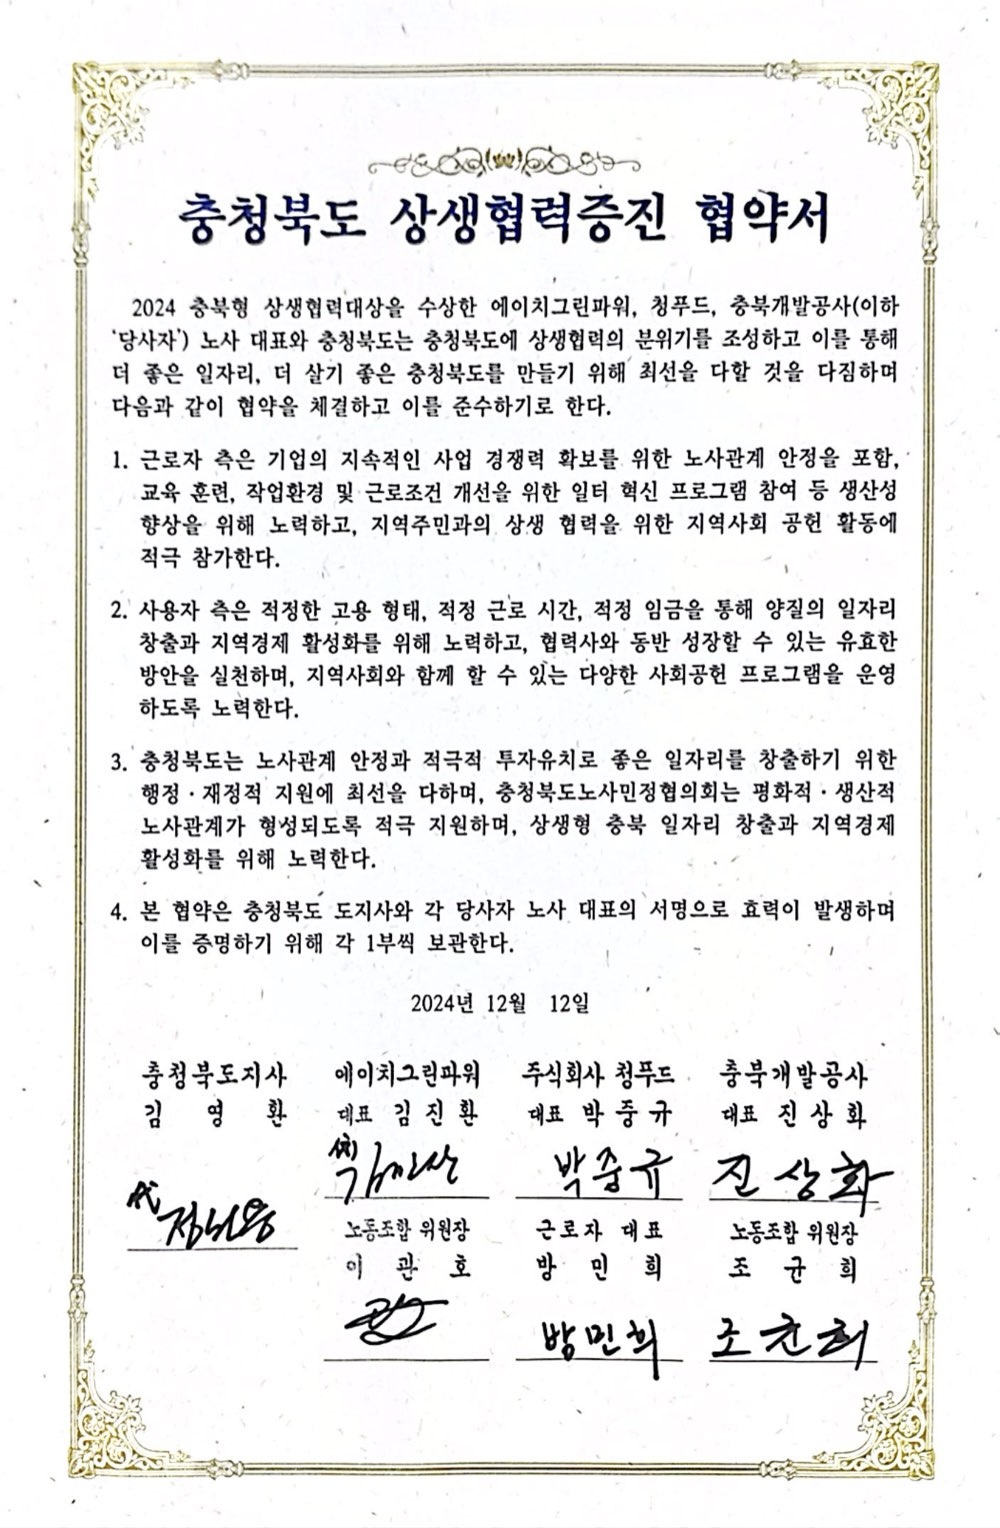 충청북도 상생협력증진 협약서
2024 충북형 상생협력대상을 수상한 에이치그린파워, 청푸드, 충북개발공사(이하
‘당사자’) 노사 대표와 충청북도는 충청북도에 상생협력의 분위기를 조성하고 이를 통해
더 좋은 일자리, 더 살기 좋은 충청북도를 만들기 위해 최선을 다할 것을 다짐하며
다음과 같이 협약을 체결하고 이를 준수하기로 한다.
1. 근로자 측은 기업의 지속적인 사업 경쟁력 확보를 위한 노사관계 안정을 포함,
교육 훈련, 작업환경 및 근로조건 개선을 위한 일터 혁신 프로그램 참여 등 생산성
향상을 위해 노력하고, 지역주민과의 상생 협력을 위한 지역사회 공헌 활동에
적극 참가한다.
2. 사용자 측은 적정한 고용 형태, 적정 근로 시간, 적정 임금을 통해 양질의 일자리
창출과 지역경제 활성화를 위해 노력하고, 협력사와 동반 성장할 수 있는 유효한
방안을 실천하며, 지역사회와 함께 할 수 있는 다양한 사회공헌 프로그램을 운영
하도록 노력한다.
3. 충청북도는 노사관계 안정과 적극적 투자유치로 좋은 일자리를 창출하기 위한
행정·재정적 지원에 최선을 다하며, 충청북도노사민정협의회는 평화적·생산적
노사관계가 형성되도록 적극 지원하며, 상생형 충북 일자리 창출과 지역경제
활성화를 위해 노력한다.
4. 본 협약은 충청북도 도지사와 각 당사자 노사 대표의 서명으로 효력이 발생하며
이를 증명하기 위해 각 1부씩 보관한다.
2024년 12월 12일
충청북도지사 에이치그린파워 주식회사 청푸드 충북개발공사
김 영 환 대표 김 진 환 대표 박 중 규 대표 진 상 화
박중규 진상화
代
노동조합 위원장 근로자 대표 노동조합 위원장
이 관 호 방 민 희 조 균 희
방민희 조균희